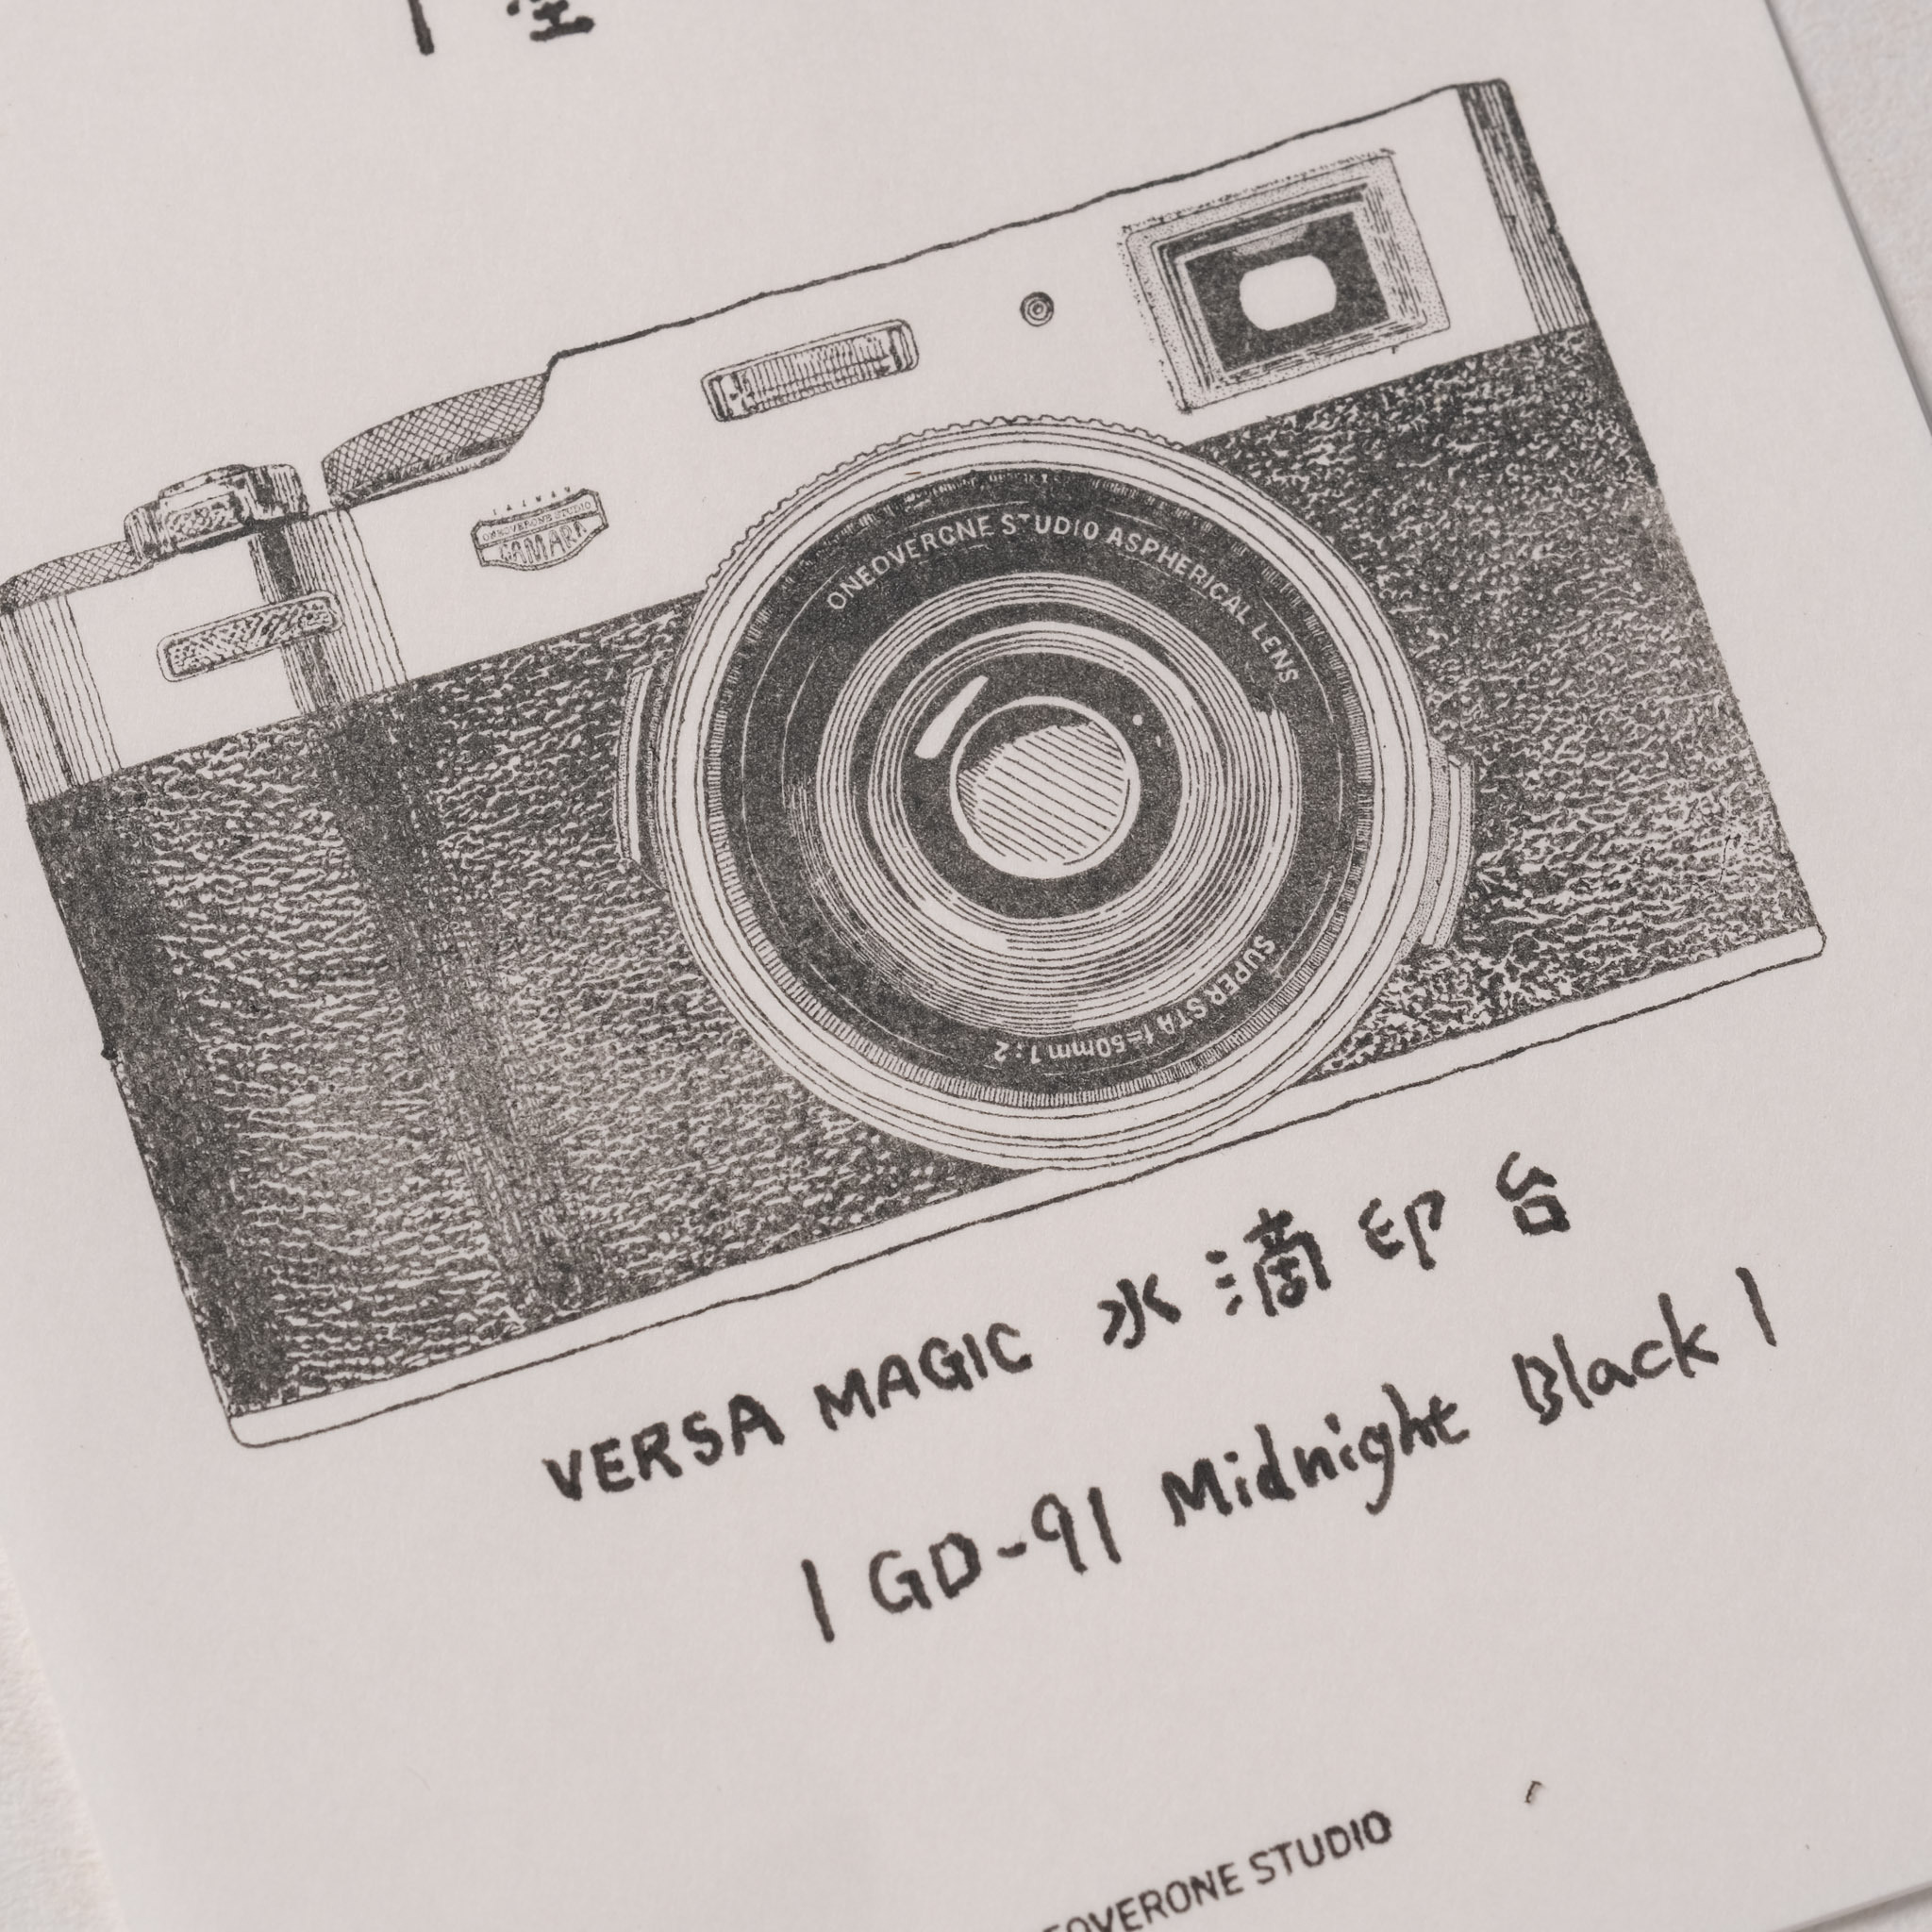 TAIWAN
ONEOVERONE STUDIO
ONEOVERONE STUDIO ASPHERICAL LENS
SUPER STA f=50mm 1:2
VERSA MAGIC 水滴印台
| GD-91 Midnight Black |
EOVERONE STUDIO